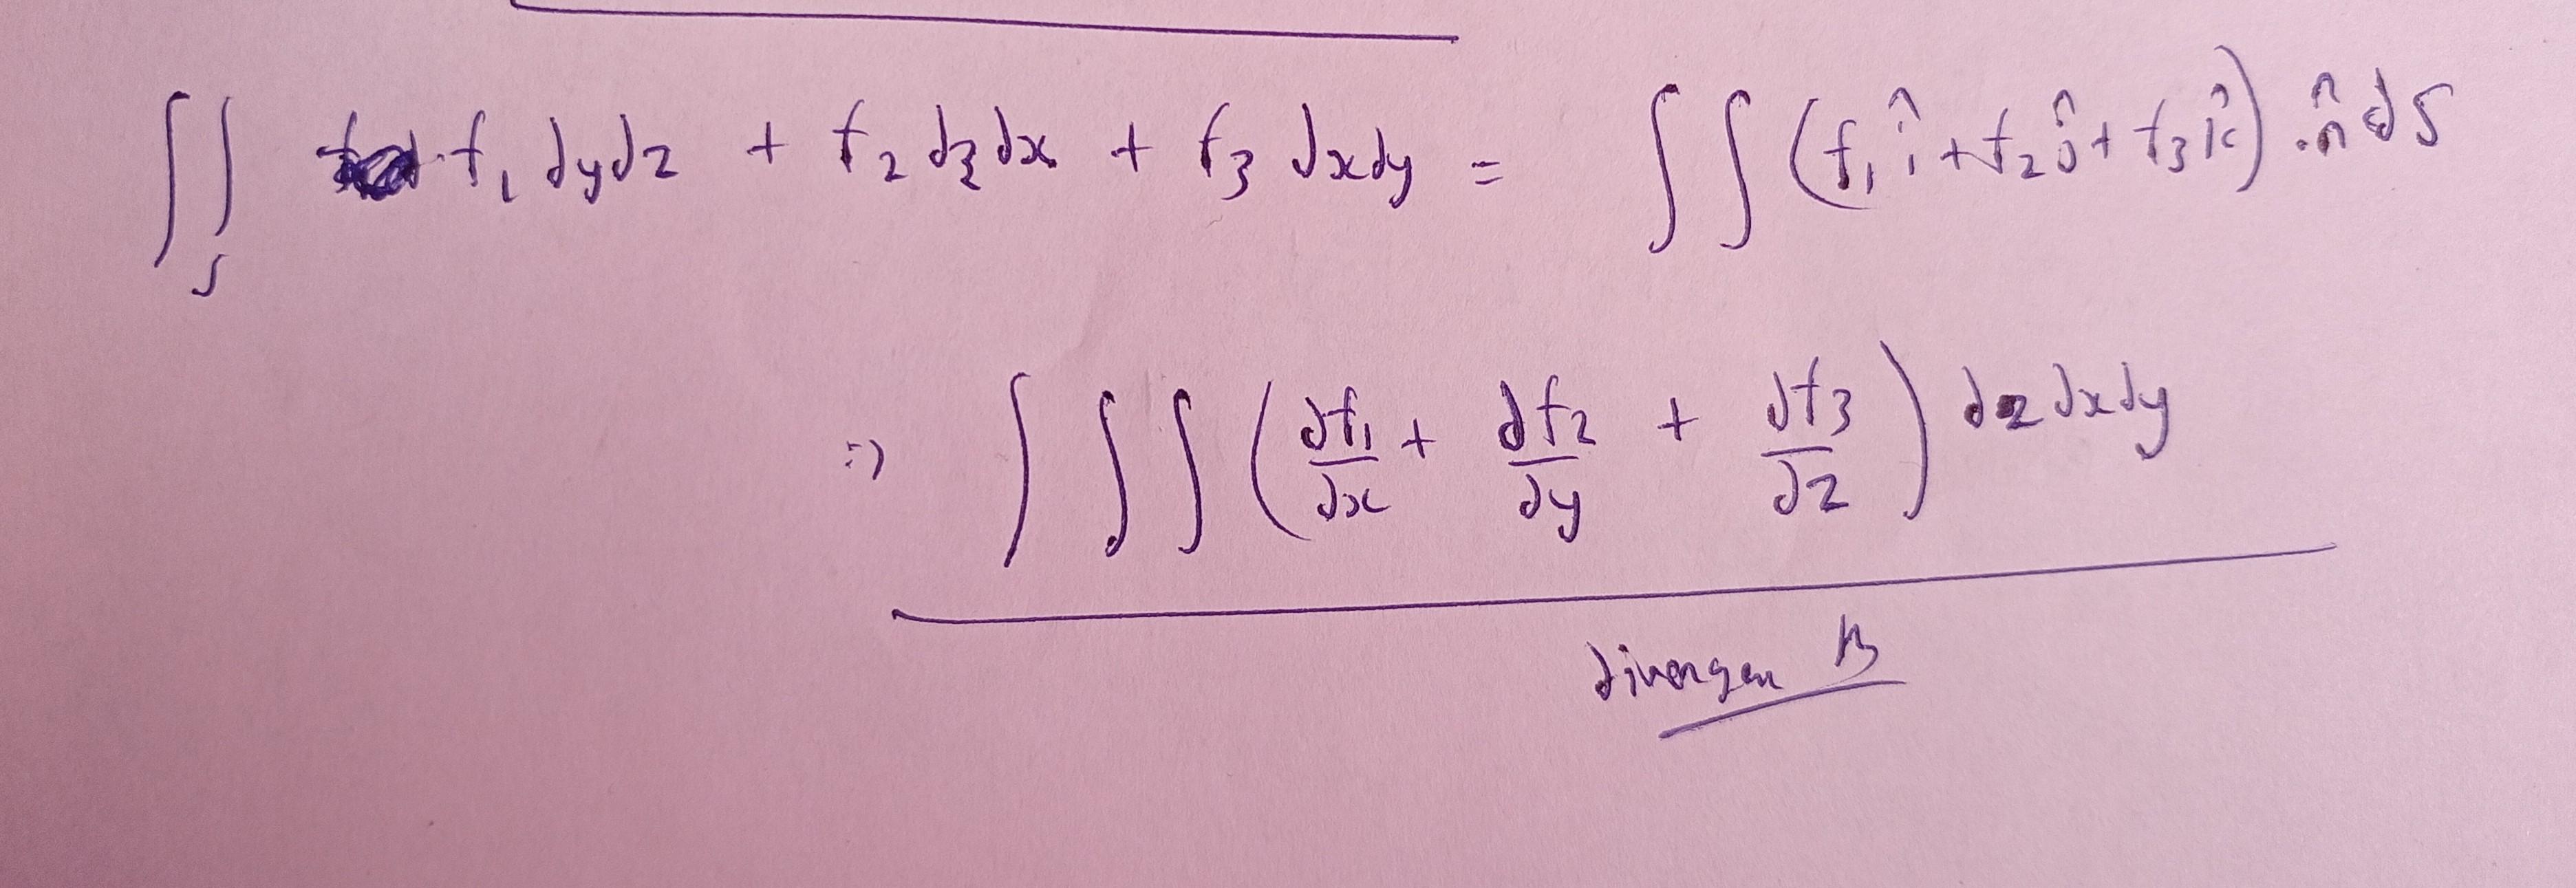 ∫∫_S f₁ dydz + f₂ dzdx + f₃ dxdy = ∫∫ (f₁î + f₂ĵ + f₃k̂) · n̂ ds
⇒ ∫∫∫ (∂f₁/∂x + ∂f₂/∂y + ∂f₃/∂z) dz dx dy